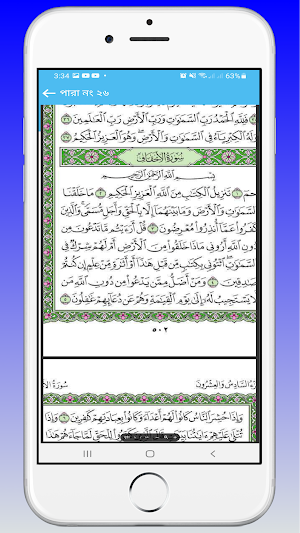 3:34 63%
পারা নং ২৬
فَلِلَّهِ الْحَمْدُ رَبِّ السَّمَٰوَٰتِ وَرَبِّ الْأَرْضِ رَبِّ الْعَٰلَمِينَ ٣٦
وَلَهُ الْكِبْرِيَاءُ فِي السَّمَٰوَٰتِ وَالْأَرْضِ وَهُوَ الْعَزِيزُ الْحَكِيمُ ٣٧
سُورَةُ الْأَحْقَافِ
بِسْمِ اللَّهِ الرَّحْمَٰنِ الرَّحِيمِ
حمٓ ١ تَنزِيلُ الْكِتَٰبِ مِنَ اللَّهِ الْعَزِيزِ الْحَكِيمِ ٢ مَا خَلَقْنَا
السَّمَٰوَٰتِ وَالْأَرْضَ وَمَا بَيْنَهُمَا إِلَّا بِالْحَقِّ وَأَجَلٍ مُّسَمًّى وَالَّذِينَ
كَفَرُوا عَمَّا أُنذِرُوا مُعْرِضُونَ ٣ قُلْ أَرَءَيْتُم مَّا تَدْعُونَ مِن
دُونِ اللَّهِ أَرُونِي مَاذَا خَلَقُوا مِنَ الْأَرْضِ أَمْ لَهُمْ شِرْكٌ فِي
السَّمَٰوَٰتِ ائْتُونِي بِكِتَٰبٍ مِّن قَبْلِ هَٰذَا أَوْ أَثَٰرَةٍ مِّنْ عِلْمٍ إِن كُنتُمْ
صَٰدِقِينَ ٤ وَمَنْ أَضَلُّ مِمَّن يَدْعُوا مِن دُونِ اللَّهِ مَن
لَّا يَسْتَجِيبُ لَهُ إِلَىٰ يَوْمِ الْقِيَٰمَةِ وَهُمْ عَن دُعَائِهِمْ غَٰفِلُونَ ٥
٥٠٢
الجُزْءُ السَّادِسُ وَالْعِشْرُونَ سُورَةُ الْأَ
وَإِذَا حُشِرَ النَّاسُ كَانُوا لَهُمْ أَعْدَاءً وَكَانُوا بِعِبَادَتِهِمْ كَٰفِرِينَ ٦ وَإِذَا
تُتْلَىٰ عَلَيْهِمْ ءَايَٰتُنَا بَيِّنَٰتٍ قَالَ الَّذِينَ كَفَرُوا لِلْحَقِّ لَمَّا جَاءَهُمْ هَٰذَا